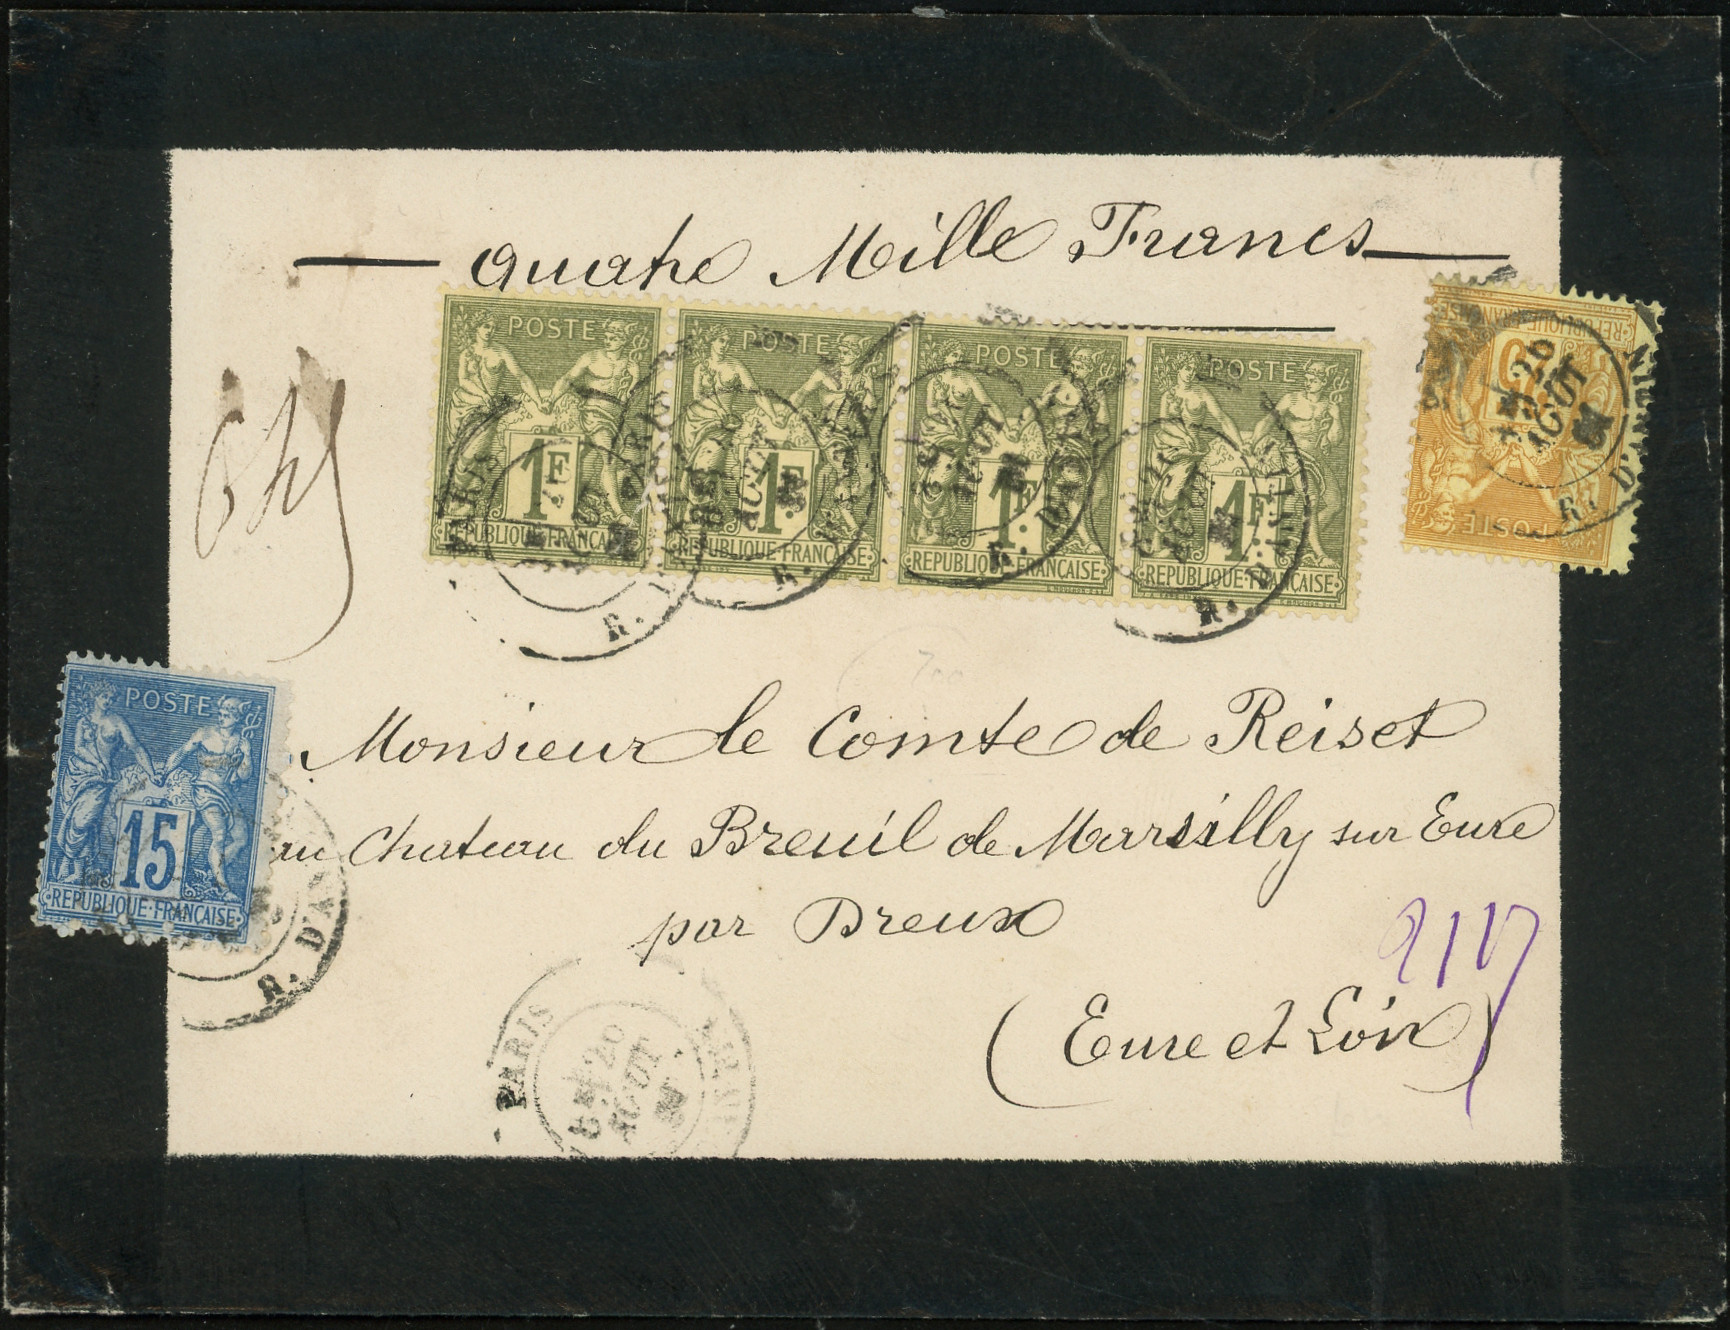 Quatre Mille Francs
POSTE
1F
REPUBLIQUE·FRANÇAISE
POSTE
1F
REPUBLIQUE·FRANÇAISE
POSTE
1F
REPUBLIQUE·FRANÇAISE
POSTE
1F
REPUBLIQUE·FRANÇAISE
POSTE
25
REPUBLIQUE FRANÇAISE
AOUT
R. D'A
PARIS
AOUT
AOUT
R.
R.
R.
Monsieur le Comte de Reiset
au Chateau du Breuil de Marsilly sur Eure
par Dreux
(Eure et Loir)
POSTE
15
REPUBLIQUE·FRANÇAISE
R. D'A
PARIS
20
AOUT